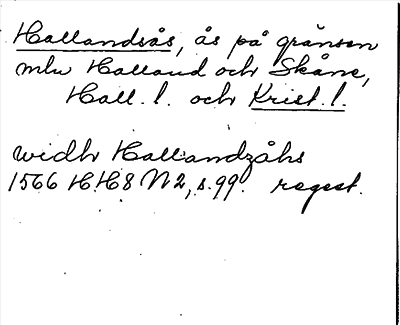 Hallandsås, ås på gränsen
mln Halland och Skåne,
Hall. l. och Krist. l.
widh Hallandzåhs
1566 HH8 N2, s. 99. regest.